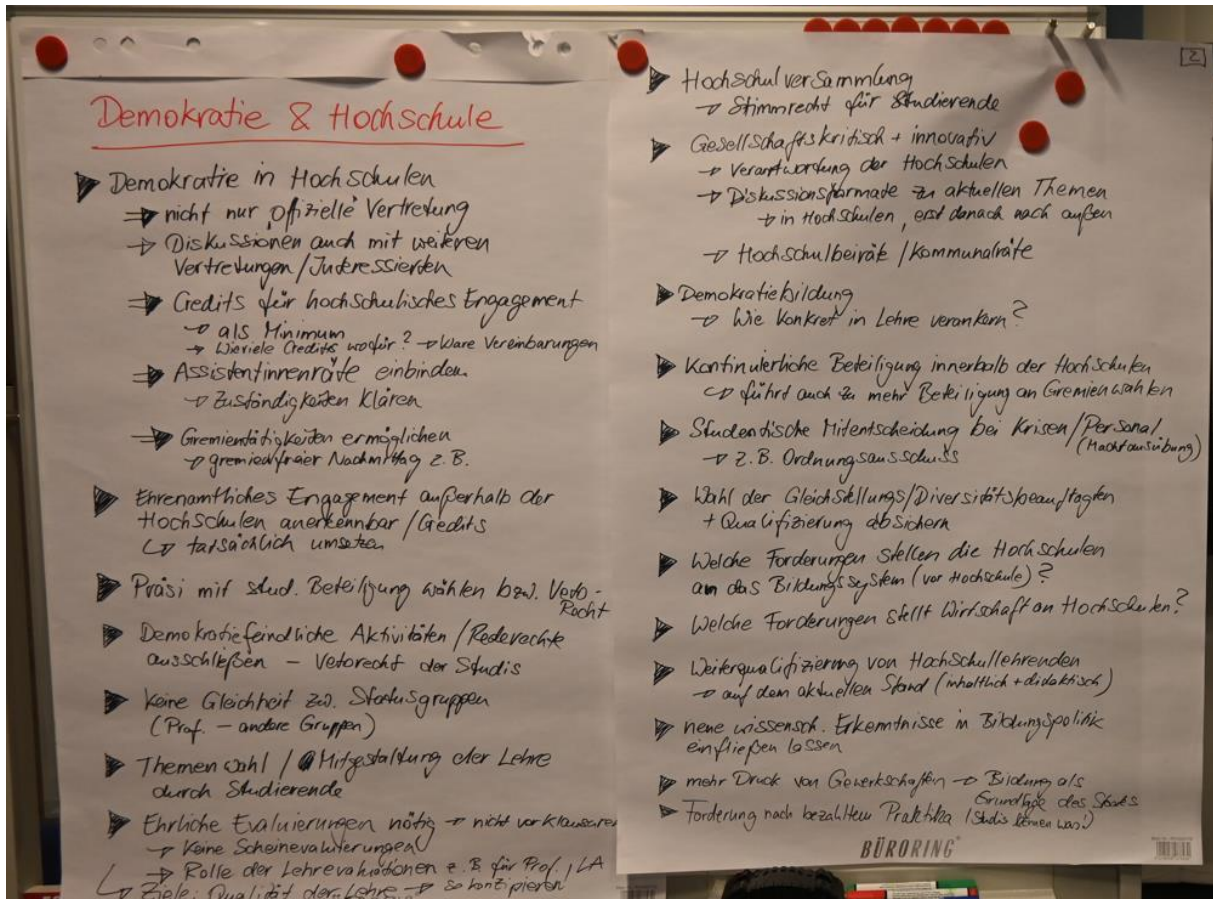 Demokratie & Hochschule
Demokratie in Hochschulen
⇒ nicht nur offizielle Vertretung
→ Diskussionen auch mit weiteren
Vertretungen/Interessierten
⇒ Credits für hochschulisches Engagement
→ als Minimum
→ Wieviele Credits wofür? → klare Vereinbarungen
⇒ Assistentinnenräte einbinden
→ Zuständigkeiten klären
⇒ Gremientätigkeiten ermöglichen
→ gremienfreier Nachmittag z.B.
Ehrenamtliches Engagement außerhalb der
Hochschulen anerkennbar/Credits
↳ tatsächlich umsetzen
Präsi mit stud. Beteiligung wählen bzw. Veto-
Recht
Demokratiefeindliche Aktivitäten/Rederechte
ausschließen – Vetorecht der Studis
Keine Gleichheit zw. Statusgruppen
(Prof. – andere Gruppen)
Themenwahl / Mitgestaltung der Lehre
durch Studierende
Ehrliche Evaluierungen nötig → nicht vor Klausuren
→ Keine Scheinevaluierungen
⇒ Rolle der Lehrevaluationen z.B. für Prof., LA
↳ Ziele: Qualität der Lehre → so konzipieren
2
Hochschulversammlung
→ Stimmrecht für Studierende
Gesellschaftskritisch + innovativ
→ Verantwortung der Hochschulen
→ Diskussionsformate zu aktuellen Themen
→ in Hochschulen, erst danach nach außen
→ Hochschulbeiräte/Kommunalräte
Demokratiebildung
→ Wie konkret in Lehre verankern?
Kontinuierliche Beteiligung innerhalb der Hochschulen
↳ führt auch zu mehr Beteiligung an Gremienwahlen
Studentische Mitentscheidung bei Krisen/Personal
(Machtausübung)
→ z.B. Ordnungsausschuss
Wahl der Gleichstellungs/Diversitätsbeauftagten
+ Qualifizierung absichern
Welche Forderungen stellen die Hochschulen
an das Bildungssystem (vor Hochschule)?
Welche Forderungen stellt Wirtschaft an Hochschulen?
Weiterqualifizierung von Hochschullehrenden
→ auf dem aktuellen Stand (inhaltlich + didaktisch)
neue wissensch. Erkenntnisse in Bildungspolitik
einfließen lassen
mehr Druck von Gewerkschaften → Bildung als
des Staats
Forderung nach bezahltem Praktika (Studis können was!)
BÜRORING